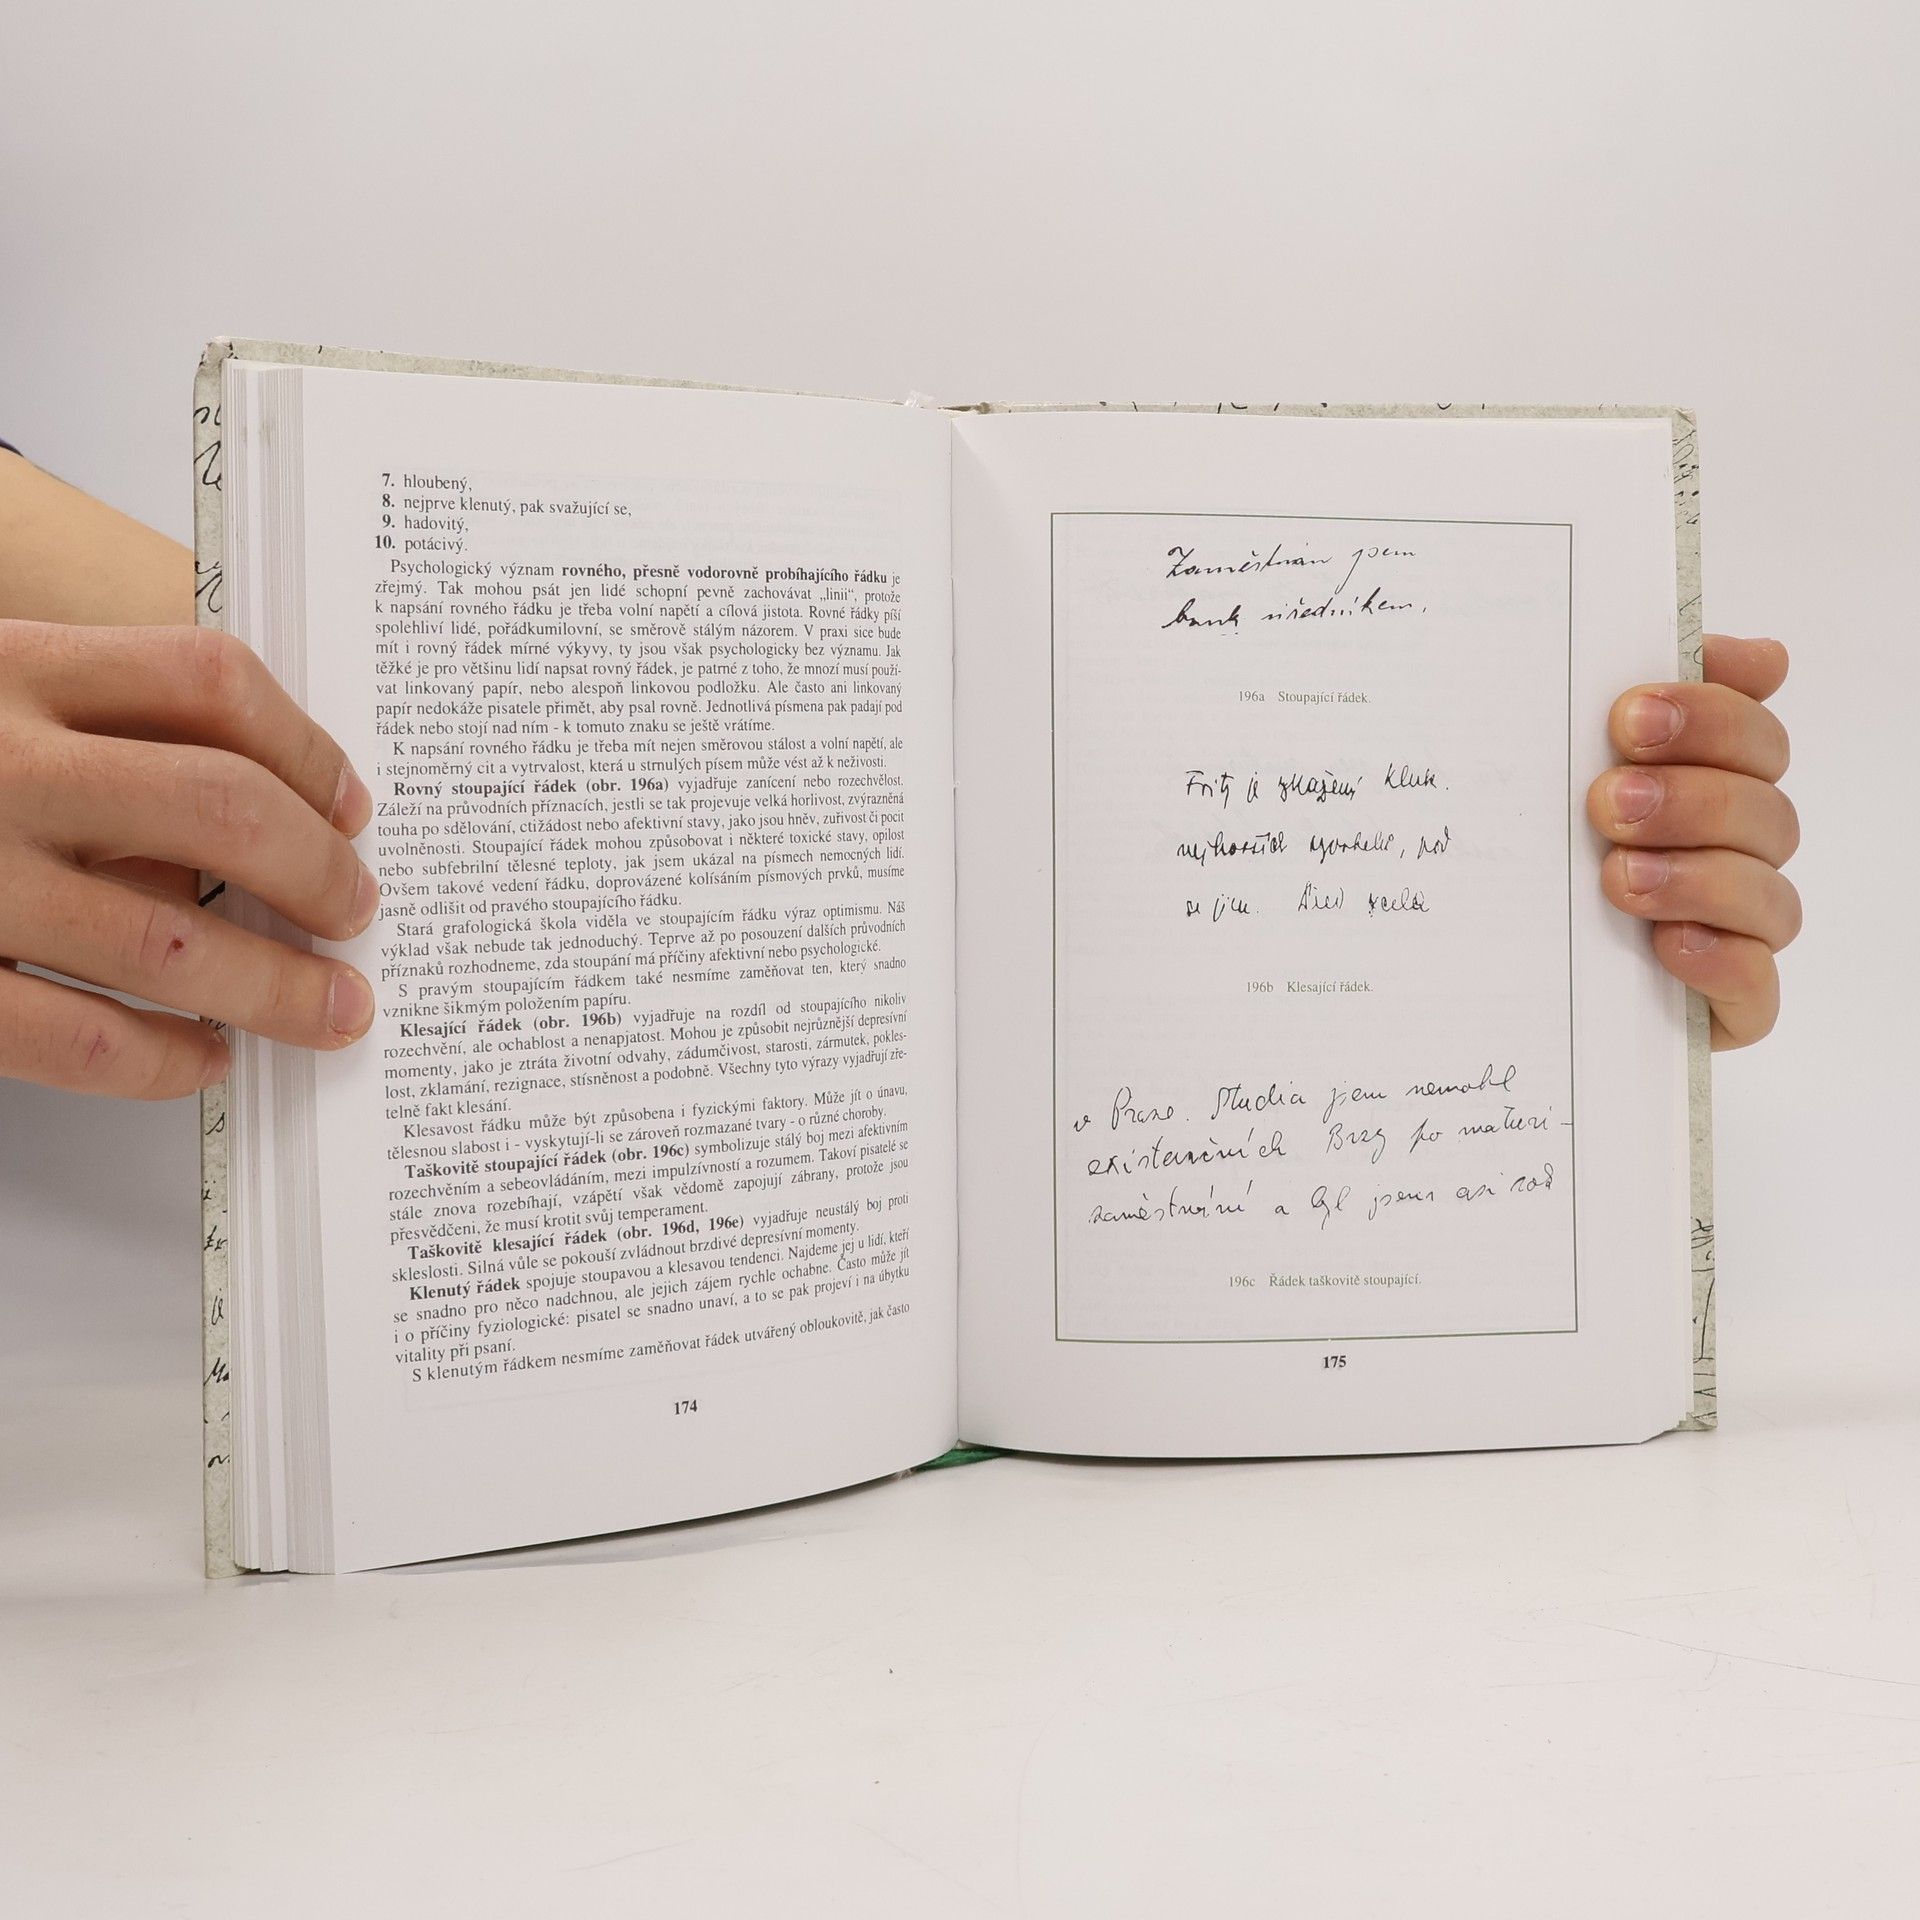 7. hloubený,
8. nejprve klenutý, pak svažující se,
9. hadovitý,
10. potácivý.
Psychologický význam rovného, přesně vodorovně probíhajícího řádku je
zřejmý. Tak mohou psát jen lidé schopní pevně zachovávat „linii“, protože
k napsání rovného řádku je třeba volní napětí a cílová jistota. Rovné řádky píší
spolehliví lidé, pořádkumilovní, se směrově stálým názorem. V praxi sice bude
mít i rovný řádek mírné výkyvy, ty jsou však psychologicky bez významu. Jak
těžké je pro většinu lidí napsat rovný řádek, je patrné z toho, že mnozí musí použí-
vat linkovaný papír, nebo alespoň linkovou podložku. Ale často ani linkovaný
papír nedokáže pisatele přimět, aby psal rovně. Jednotlivá písmena pak padají pod
řádek nebo stojí nad ním - k tomuto znaku se ještě vrátíme.
K napsání rovného řádku je třeba mít nejen směrovou stálost a volní napětí, ale
i stejnoměrný cit a vytrvalost, která u strnulých písem může vést až k neživosti.
Rovný stoupající řádek (obr. 196a) vyjadřuje zanícení nebo rozechvělost.
Záleží na průvodních příznacích, jestli se tak projevuje velká horlivost, zvýrazněná
touha po sdělování, ctižádost nebo afektivní stavy, jako jsou hněv, zuřivost či pocit
uvolněnosti. Stoupající řádek mohou způsobovat i některé toxické stavy, opilost
nebo subfebrilní tělesné teploty, jak jsem ukázal na písmech nemocných lidí.
Ovšem takové vedení řádku, doprovázené kolísáním písmových prvků, musíme
jasně odlišit od pravého stoupajícího řádku.
Stará grafologická škola viděla ve stoupajícím řádku výraz optimismu. Náš
výklad však nebude tak jednoduchý. Teprve až po posouzení dalších průvodních
příznaků rozhodneme, zda stoupání má příčiny afektivní nebo psychologické.
S pravým stoupajícím řádkem také nesmíme zaměňovat ten, který snadno
vznikne šikmým položením papíru.
Klesající řádek (obr. 196b) vyjadřuje na rozdíl od stoupajícího nikoliv
rozechvění, ale ochablost a nenapjatost. Mohou je způsobit nejrůznější depresívní
momenty, jako je ztráta životní odvahy, zádumčivost, starosti, zármutek, pokles-
lost, zklamání, rezignace, stísněnost a podobně. Všechny tyto výrazy vyjadřují zře-
telně fakt klesání.
Klesavost řádku může být způsobena i fyzickými faktory. Může jít o únavu,
tělesnou slabost i - vyskytují-li se zároveň rozmazané tvary - o různé choroby.
Taškovitě stoupající řádek (obr. 196c) symbolizuje stálý boj mezi afektivním
rozechvěním a sebeovládáním, mezi impulzívností a rozumem. Takoví pisatelé se
stále znova rozebíhají, vzápětí však vědomě zapojují zábrany, protože jsou
přesvědčeni, že musí krotit svůj temperament.
Taškovitě klesající řádek (obr. 196d, 196e) vyjadřuje neustálý boj proti
skleslosti. Silná vůle se pokouší zvládnout brzdivé depresívní momenty.
Klenutý řádek spojuje stoupavou a klesavou tendenci. Najdeme jej u lidí, kteří
se snadno pro něco nadchnou, ale jejich zájem rychle ochabne. Často může jít
i o příčiny fyziologické: pisatel se snadno unaví, a to se pak projeví i na úbytku
vitality při psaní.
S klenutým řádkem nesmíme zaměňovat řádek utvářený obloukovitě, jak často
174
Zaměstnán jsem
bank úředníkem,
196a Stoupající řádek.
Fritz je zkažený kluk.
nejhorších
se jen.
196b Klesající řádek.
v Praze. Studia jsem nemohl
existenčních Brzy po maturi-
zaměstnání a byl jsem asi rok
196c Řádek taškovitě stoupající.
175